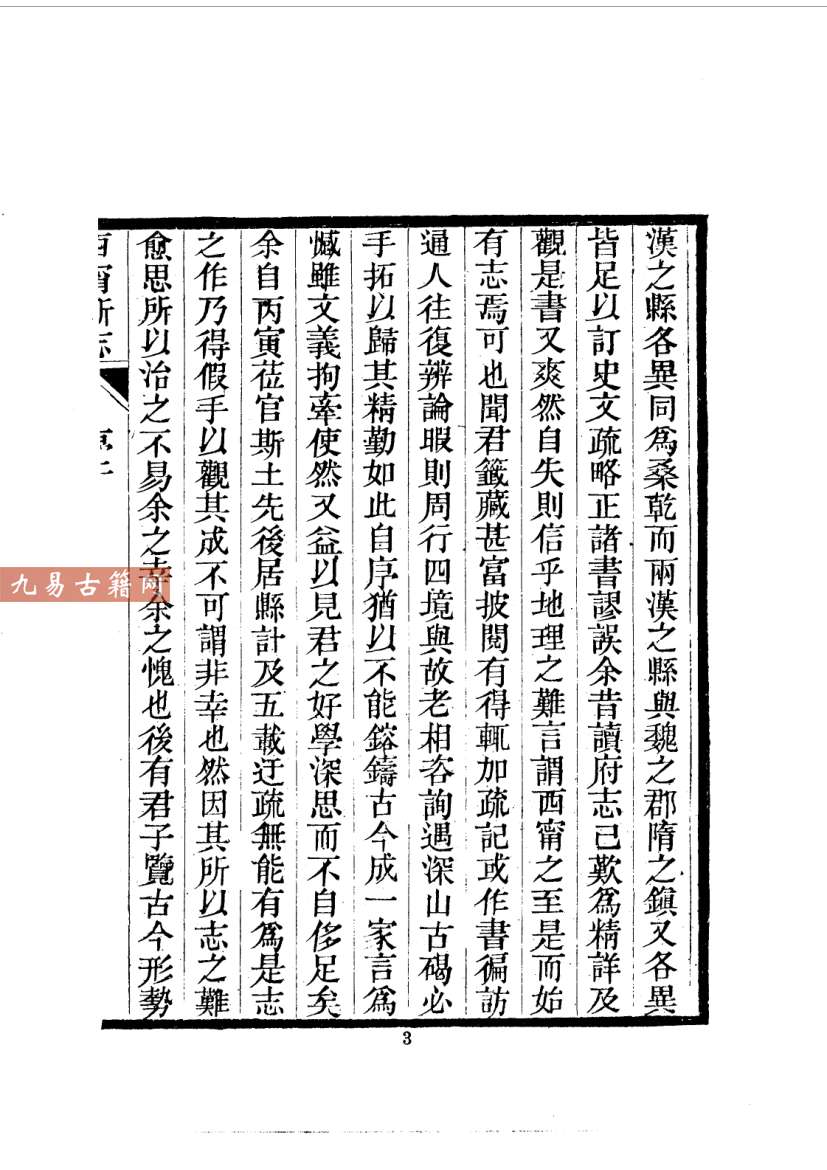 漢之縣各異同爲桑乾而兩漢之縣與魏之郡隋之鎭又各異
皆足以訂史文疏略正諸書謬誤余昔讀府志已歎爲精詳及
觀是書又爽然自失則信乎地理之難言謂西甯之至是而始
有志焉可也聞君籤藏甚富披閱有得輒加疏記或作書徧訪
通人往復辨論暇則周行四境與故老相咨詢遇深山古碣必
手拓以歸其精勤如此自序猶以不能鎔鑄古今成一家言爲
憾雖文義拘牽使然又益以見君之好學深思而不自侈足矣
余自丙寅莅官斯土先後居縣計及五載迂疏無能有爲是志
之作乃得假手以觀其成不可謂非幸也然因其所以志之難
愈思所以治之不易余之幸余之愧也後有君子覽古今形勢
西甯新志
序
九易古籍网
3